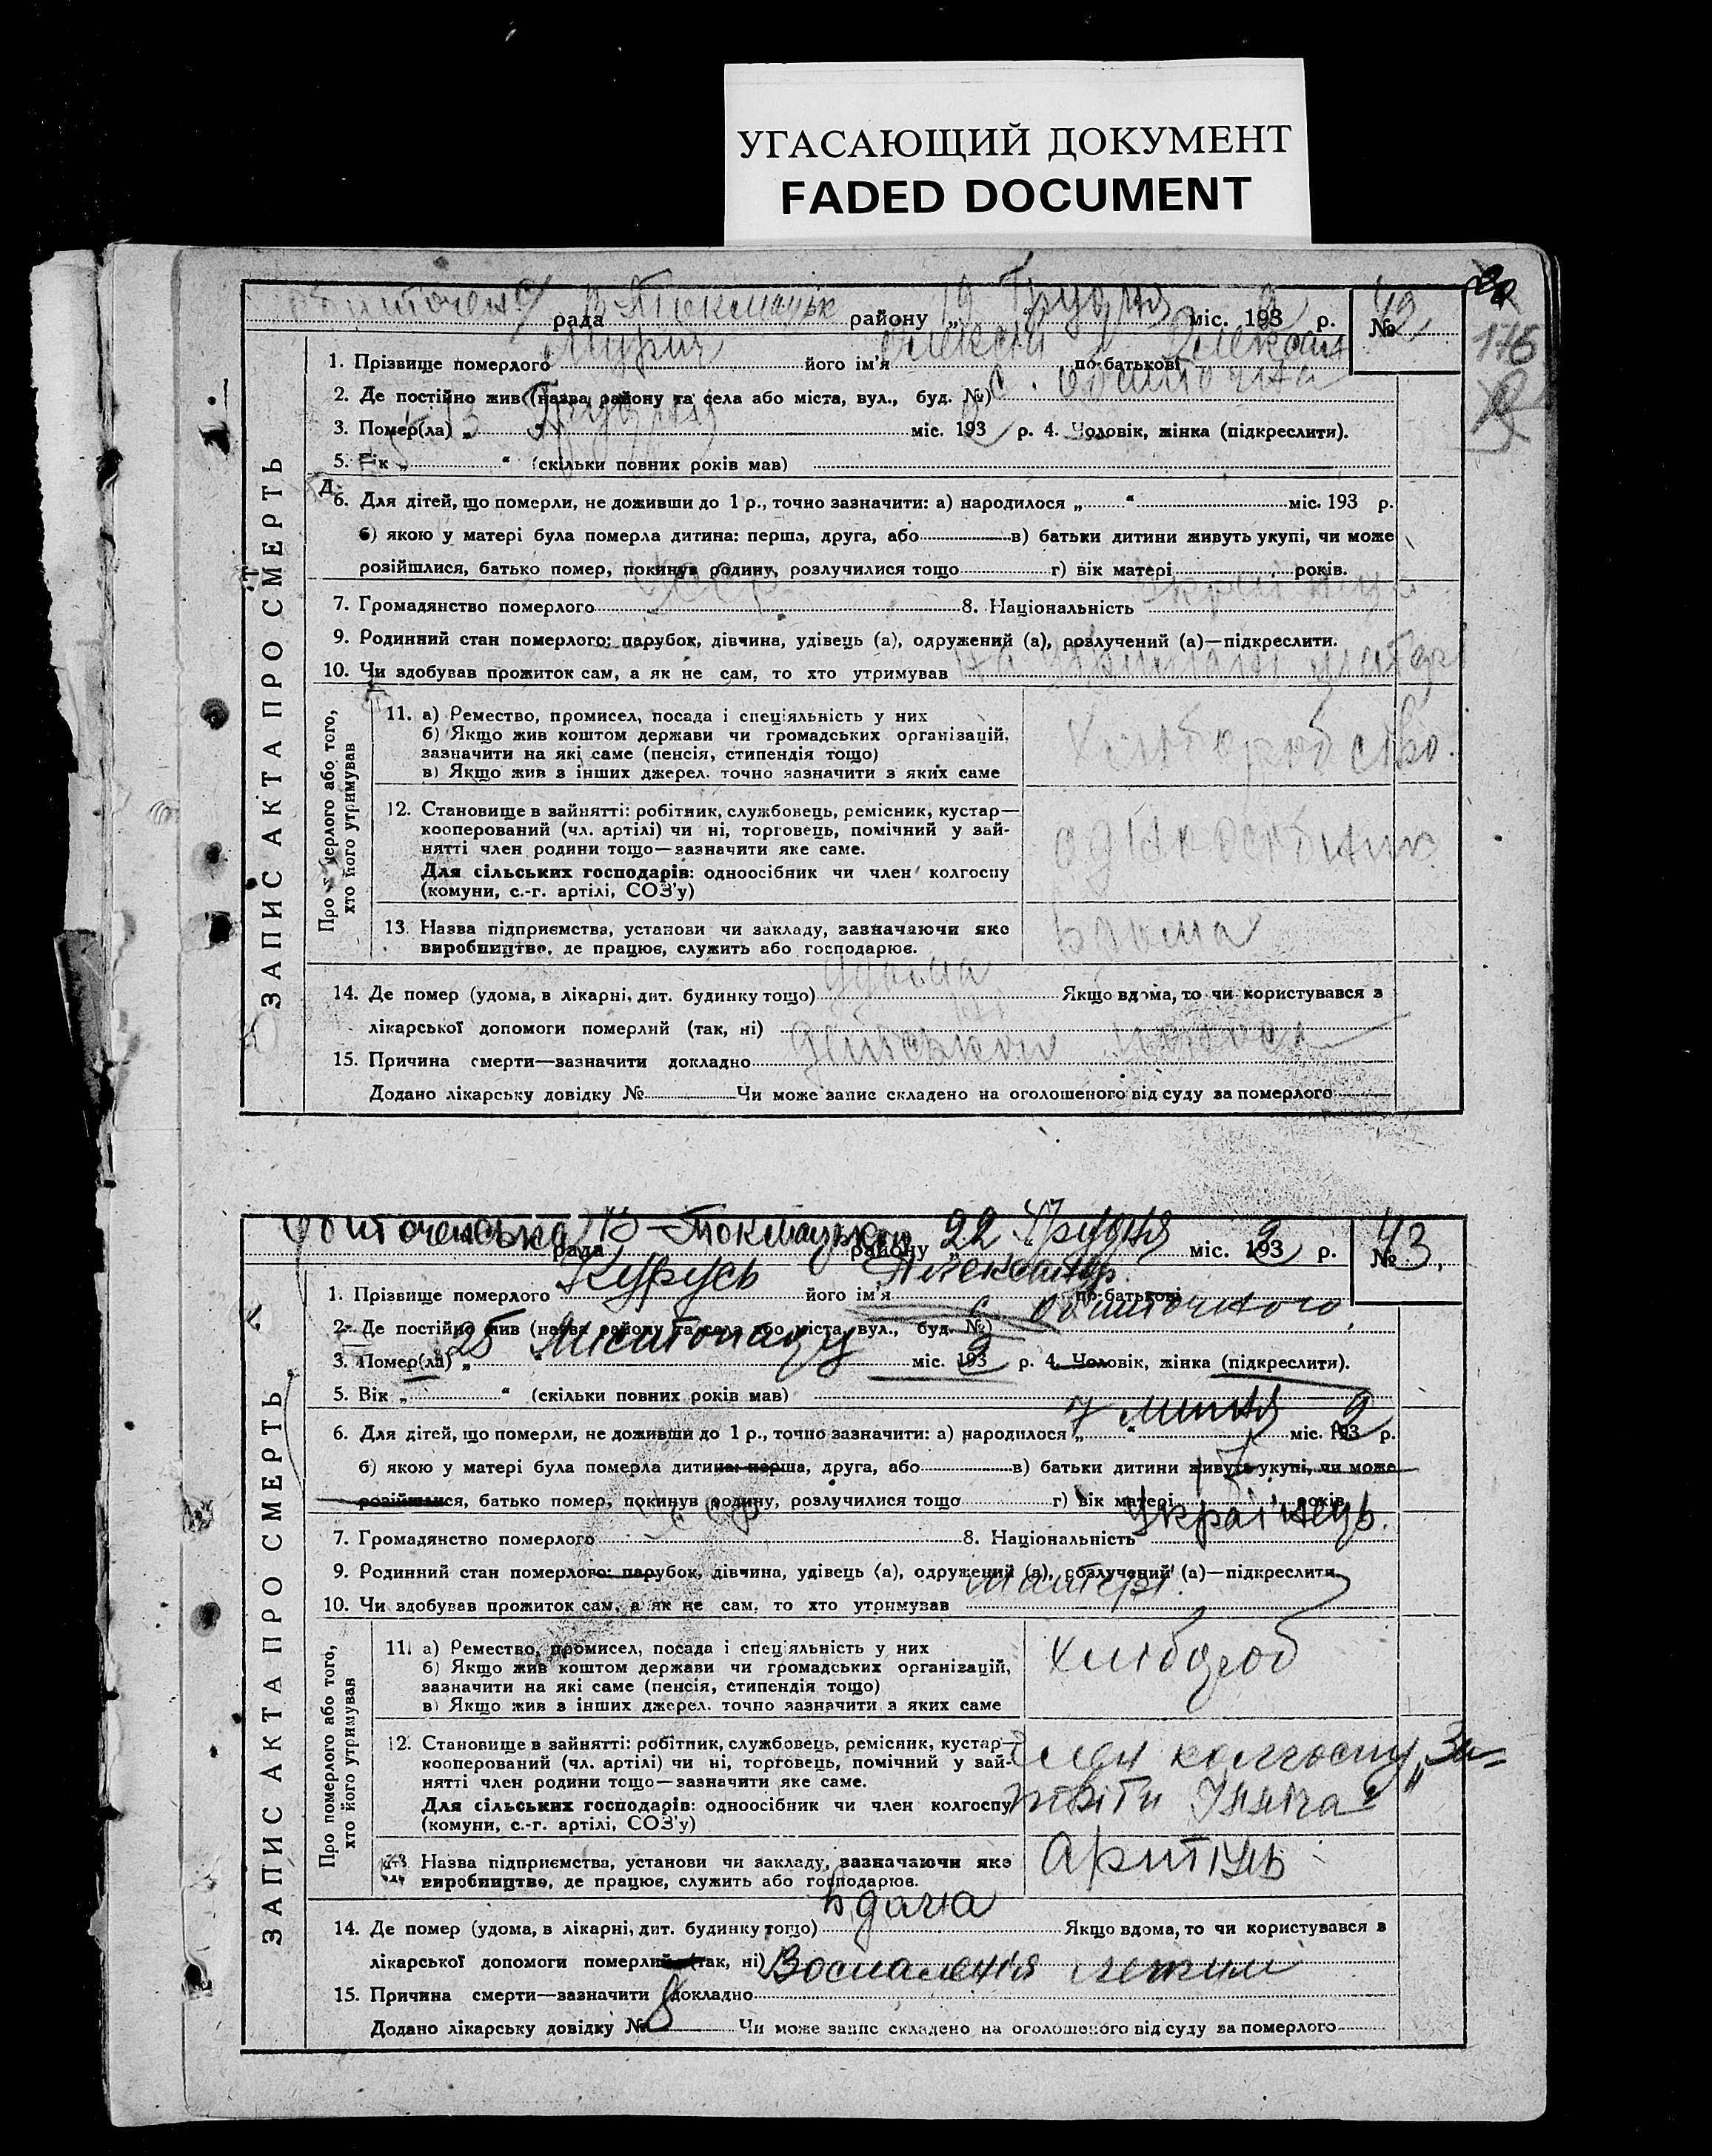 УГАСАЮЩИЙ ДОКУМЕНТ
FADED DOCUMENT
175
ЗАПИС АКТА ПРО СМЕРТЬ
рада В Токмацьк району „19" Грудня міс. 1932 р. № 42
1. Прізвище померлого його ім'я Олексій по-батькові
2. Де постійно жив (назва району та села або міста, вул., буд. №) с.
3. Помер(ла) „13" Грудня міс. 1932 р. 4. Чоловік, жінка (підкреслити).
5. Вік „ " (скільки повних років мав)
6. Для дітей, що померли, не доживши до 1 р., точно зазначити: а) народилося „ " міс. 193 р.
б) якою у матері була померла дитина: перша, друга, або в) батьки дитини живуть укупі, чи може
розійшлися, батько помер, покинув родину, розлучилися тощо г) вік матері років.
7. Громадянство померлого УССР 8. Національність
9. Родинний стан померлого: парубок, дівчина, удівець (а), одружений (а), розлучений (а)—підкреслити.
10. Чи здобував прожиток сам, а як не сам, то хто утримував на матері
Про померлого або того, хто його утримував
11. а) Ремество, промисел, посада і спеціяльність у них
б) Якщо жив коштом держави чи громадських організацій,
зазначити на які саме (пенсія, стипендія тощо)
в) Якщо жив з інших джерел. точно зазначити з яких саме
Хліборобство.
12. Становище в зайнятті: робітник, службовець, ремісник, кустар—
кооперований (чл. артілі) чи ні, торговець, помічний у зай-
нятті член родини тощо—зазначити яке саме.
Для сільських господарів: одноосібник чи член колгоспу
(комуни, с.-г. артілі, СОЗ'у)
одноосібник
13. Назва підприємства, установи чи закладу, зазначаючи яке
виробництво, де працює, служить або господарює.
Вдома
14. Де помер (удома, в лікарні, дит. будинку тощо) удома Якщо вдома, то чи користувався з
лікарської допомоги померлий (так, ні) ні
15. Причина смерти—зазначити докладно
Додано лікарську довідку № Чи може запис складено на оголошеного від суду за померлого
ЗАПИС АКТА ПРО СМЕРТЬ
Обиточенська рада В-Токмацьки району „22 Грудня міс. 1932 р. № 43
1. Прізвище померлого Курусь його ім'я Александр по-батькові
2. Де постійно жив (назва району та села або міста, вул., буд. №) с. Обиточного
3. Помер(ла) „25 Листопаду міс. 1932 р. 4. Чоловік, жінка (підкреслити).
5. Вік „ " (скільки повних років мав)
6. Для дітей, що померли, не доживши до 1 р., точно зазначити: а) народилося „7" липня міс. 1932 р.
б) якою у матері була померла дитина: перша, друга, або в) батьки дитини живуть укупі, чи може
розійшлися, батько помер, покинув родину, розлучилися тощо г) вік матері років
7. Громадянство померлого УССР 8. Національність Українець.
9. Родинний стан померлого: парубок, дівчина, удівець (а), одружений (а), розлучений (а)—підкреслити
10. Чи здобував прожиток сам, а як не сам, то хто утримував матері
Про померлого або того, хто його утримував
11. а) Ремество, промисел, посада і спеціяльність у них
б) Якщо жив коштом держави чи громадських організацій,
зазначити на які саме (пенсія, стипендія тощо)
в) Якщо жив з інших джерел. точно зазначити з яких саме
Хлібороб
12. Становище в зайнятті: робітник, службовець, ремісник, кустар—
кооперований (чл. артілі) чи ні, торговець, помічний у зай-
нятті член родини тощо—зазначити яке саме.
Для сільських господарів: одноосібник чи член колгоспу
(комуни, с.-г. артілі, СОЗ'у)
член колгоспу „За-
повіти Ілліча"
13. Назва підприємства, установи чи закладу, зазначаючи яке
виробництво, де працює, служить або господарює.
Артіль
14. Де помер (удома, в лікарні, дит. будинку тощо) вдома Якщо вдома, то чи користувався в
лікарської допомоги померлий (так, ні)
15. Причина смерти—зазначити докладно Воспаленія легких
Додано лікарську довідку № 8 Чи може запис складено на оголошеного від суду за померлого